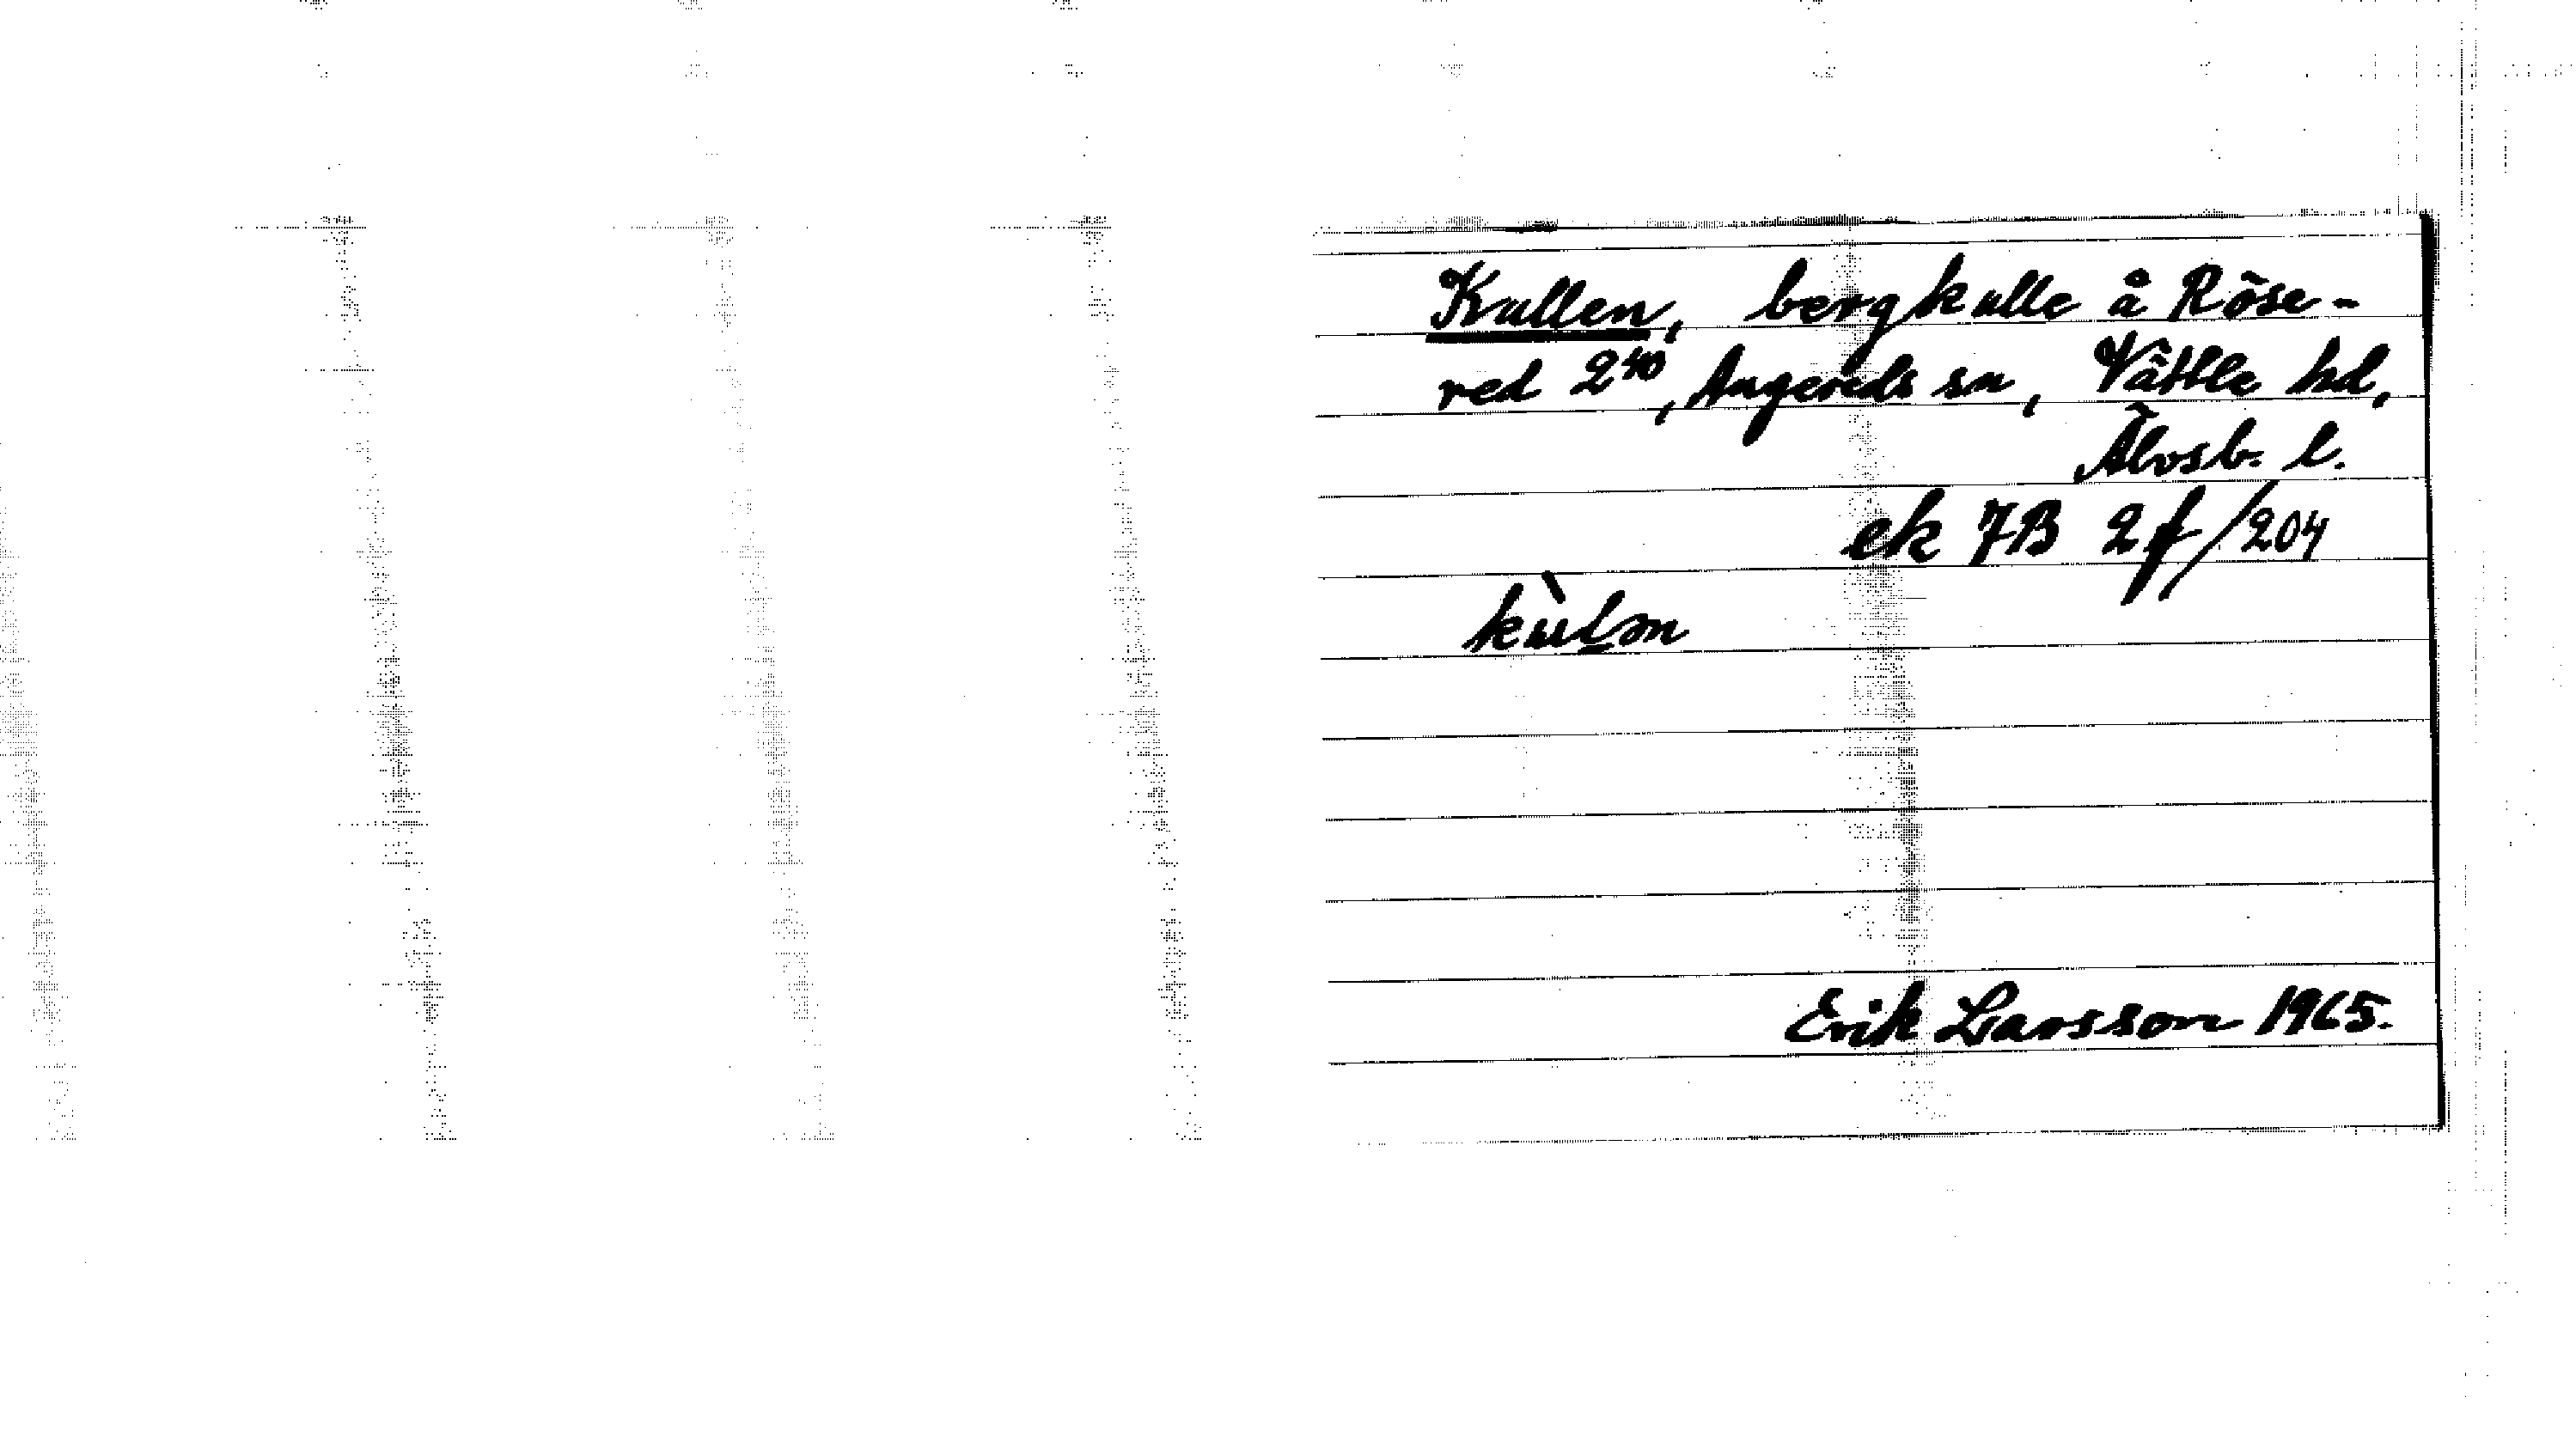 Kullen, bergkulle å Röse-
red 2⁴⁰, Angereds sn, Vättle hd,
Älvsb. l.
ek 7B 2f/204
kùl̲ən
Erik Larsson 1965.